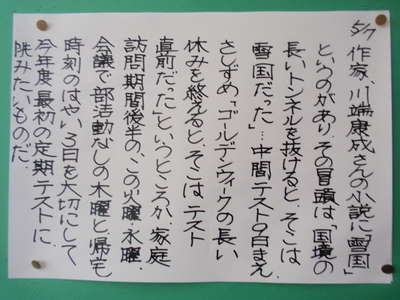 5/7
作家、川端康成さんの小説に「雪国」
というのがあり、その冒頭は「国境の
長いトンネルを抜けると、そこは
雪国だった」…中間テスト9日まえ。
さしずめ「ゴールデンウィークの長い
休みを終えると、そこはテスト
直前だった」というところか、家庭
訪問期間後半の、この火曜、水曜、
会議で部活動なしの木曜と、帰宅
時刻のはやい3日を大切にして
今年度最初の定期テストに、
挑みたいものだ。